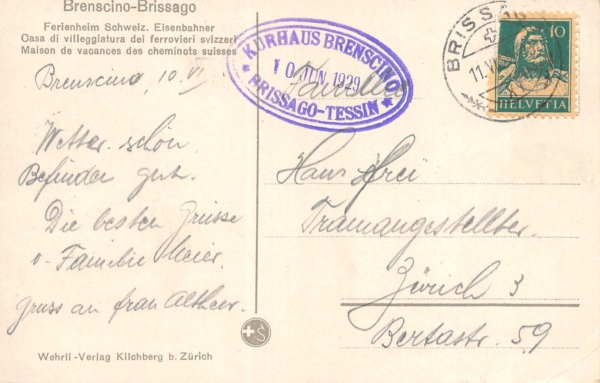 Brenscino-Brissago
Ferienheim Schweiz. Eisenbahner
Casa di villeggiatura dei ferrovieri svizzeri
Maison de vacances des cheminots suisses
Brenscino, 10. VI.
Wetter schön
Befinden gut.
Die besten Grüsse
v. Familie Meier.
Gruss an frau Altheer.
Wehrli-Verlag Kilchberg b. Zürich
KURHAUS BRENSCINO
10 JUN 1929
BRISSAGO-TESSIN
Familie
BRISSAGO
11.VI
10
HELVETIA
Hans Frei
Tramangestellter.
Zürich 3
Bertastr. 59